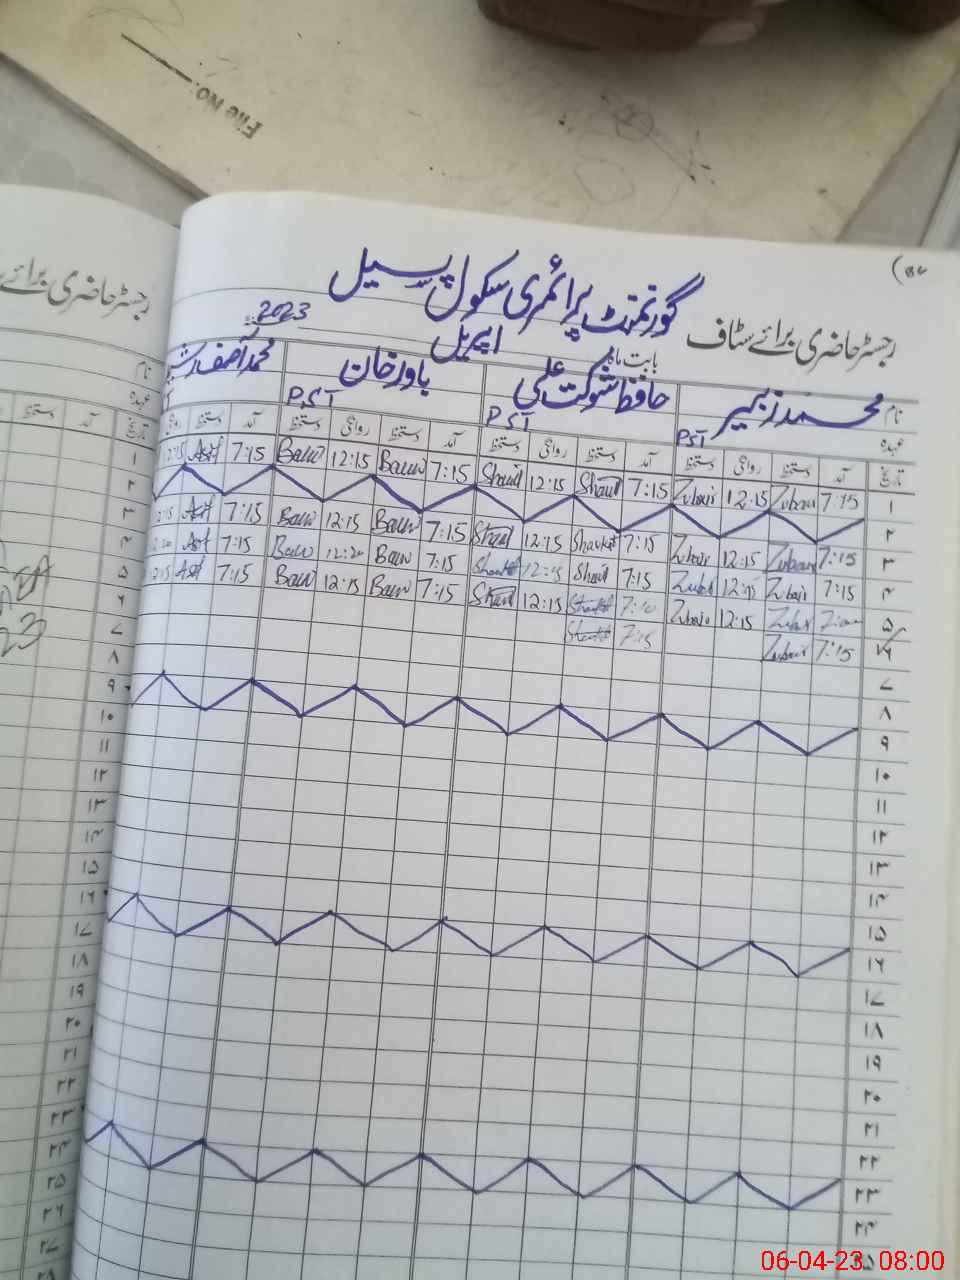 File No:
رجسٹر حاضری برائے سٹاف گورنمنٹ پرائمری سکول پسیل
بابت ماہ اپریل 2023
نام محمد زبیر حافظ شوکت علی باور خان محمد آصف
عہدہ PST PST PST
تاریخ آمد دستخط روانگی دستخط آمد دستخط روانگی دستخط آمد دستخط روانگی دستخط آمد دستخط
۱ 7:15 Zubair 12:15 Zubair 7:15 Shaukt 12:15 Shaukt 7:15 Baur 12:15 Baur 7:15 Asif 12:15
۲
۳ 7:15 Zubair 12:15 Zubair 7:15 Shaukat 12:15 Shaukt 7:15 Baur 12:15 Baur 7:15 Asif
۴ 7:15 Zubair 12:15 Zubair 7:15 Shaukt 12:15 Shaukat 7:15 Baur 12:20 Baur 7:15 Asif
۵ Zubair 12:15 Zubair 7:10 Shaukat 12:15 Shaukt 7:15 Baur 12:15 Baur 7:15 Asif
۶ 7:15 Zubair 7:15 Shaukat
۷
۸
۹
۱۰
۱۱
۱۲
۱۳
۱۴
۱۵
۱۶
۱۷
۱۸
۱۹
۲۰
۲۱
۲۲
۲۳
۲۴
۲۵
رجسٹر حاضری برائے
نام
عہدہ
تاریخ آمد دستخط
۱
۲
۳
۴
۵
۶
۷
۸
۹
۱۰
۱۱
۱۲
۱۳
۱۴
۱۵
۱۶
۱۷
۱۸
۱۹
۲۰
۲۱
۲۲
۲۳
۲۴
۲۵
۲۶
۲۷
۲۸
06-04-23 08:00